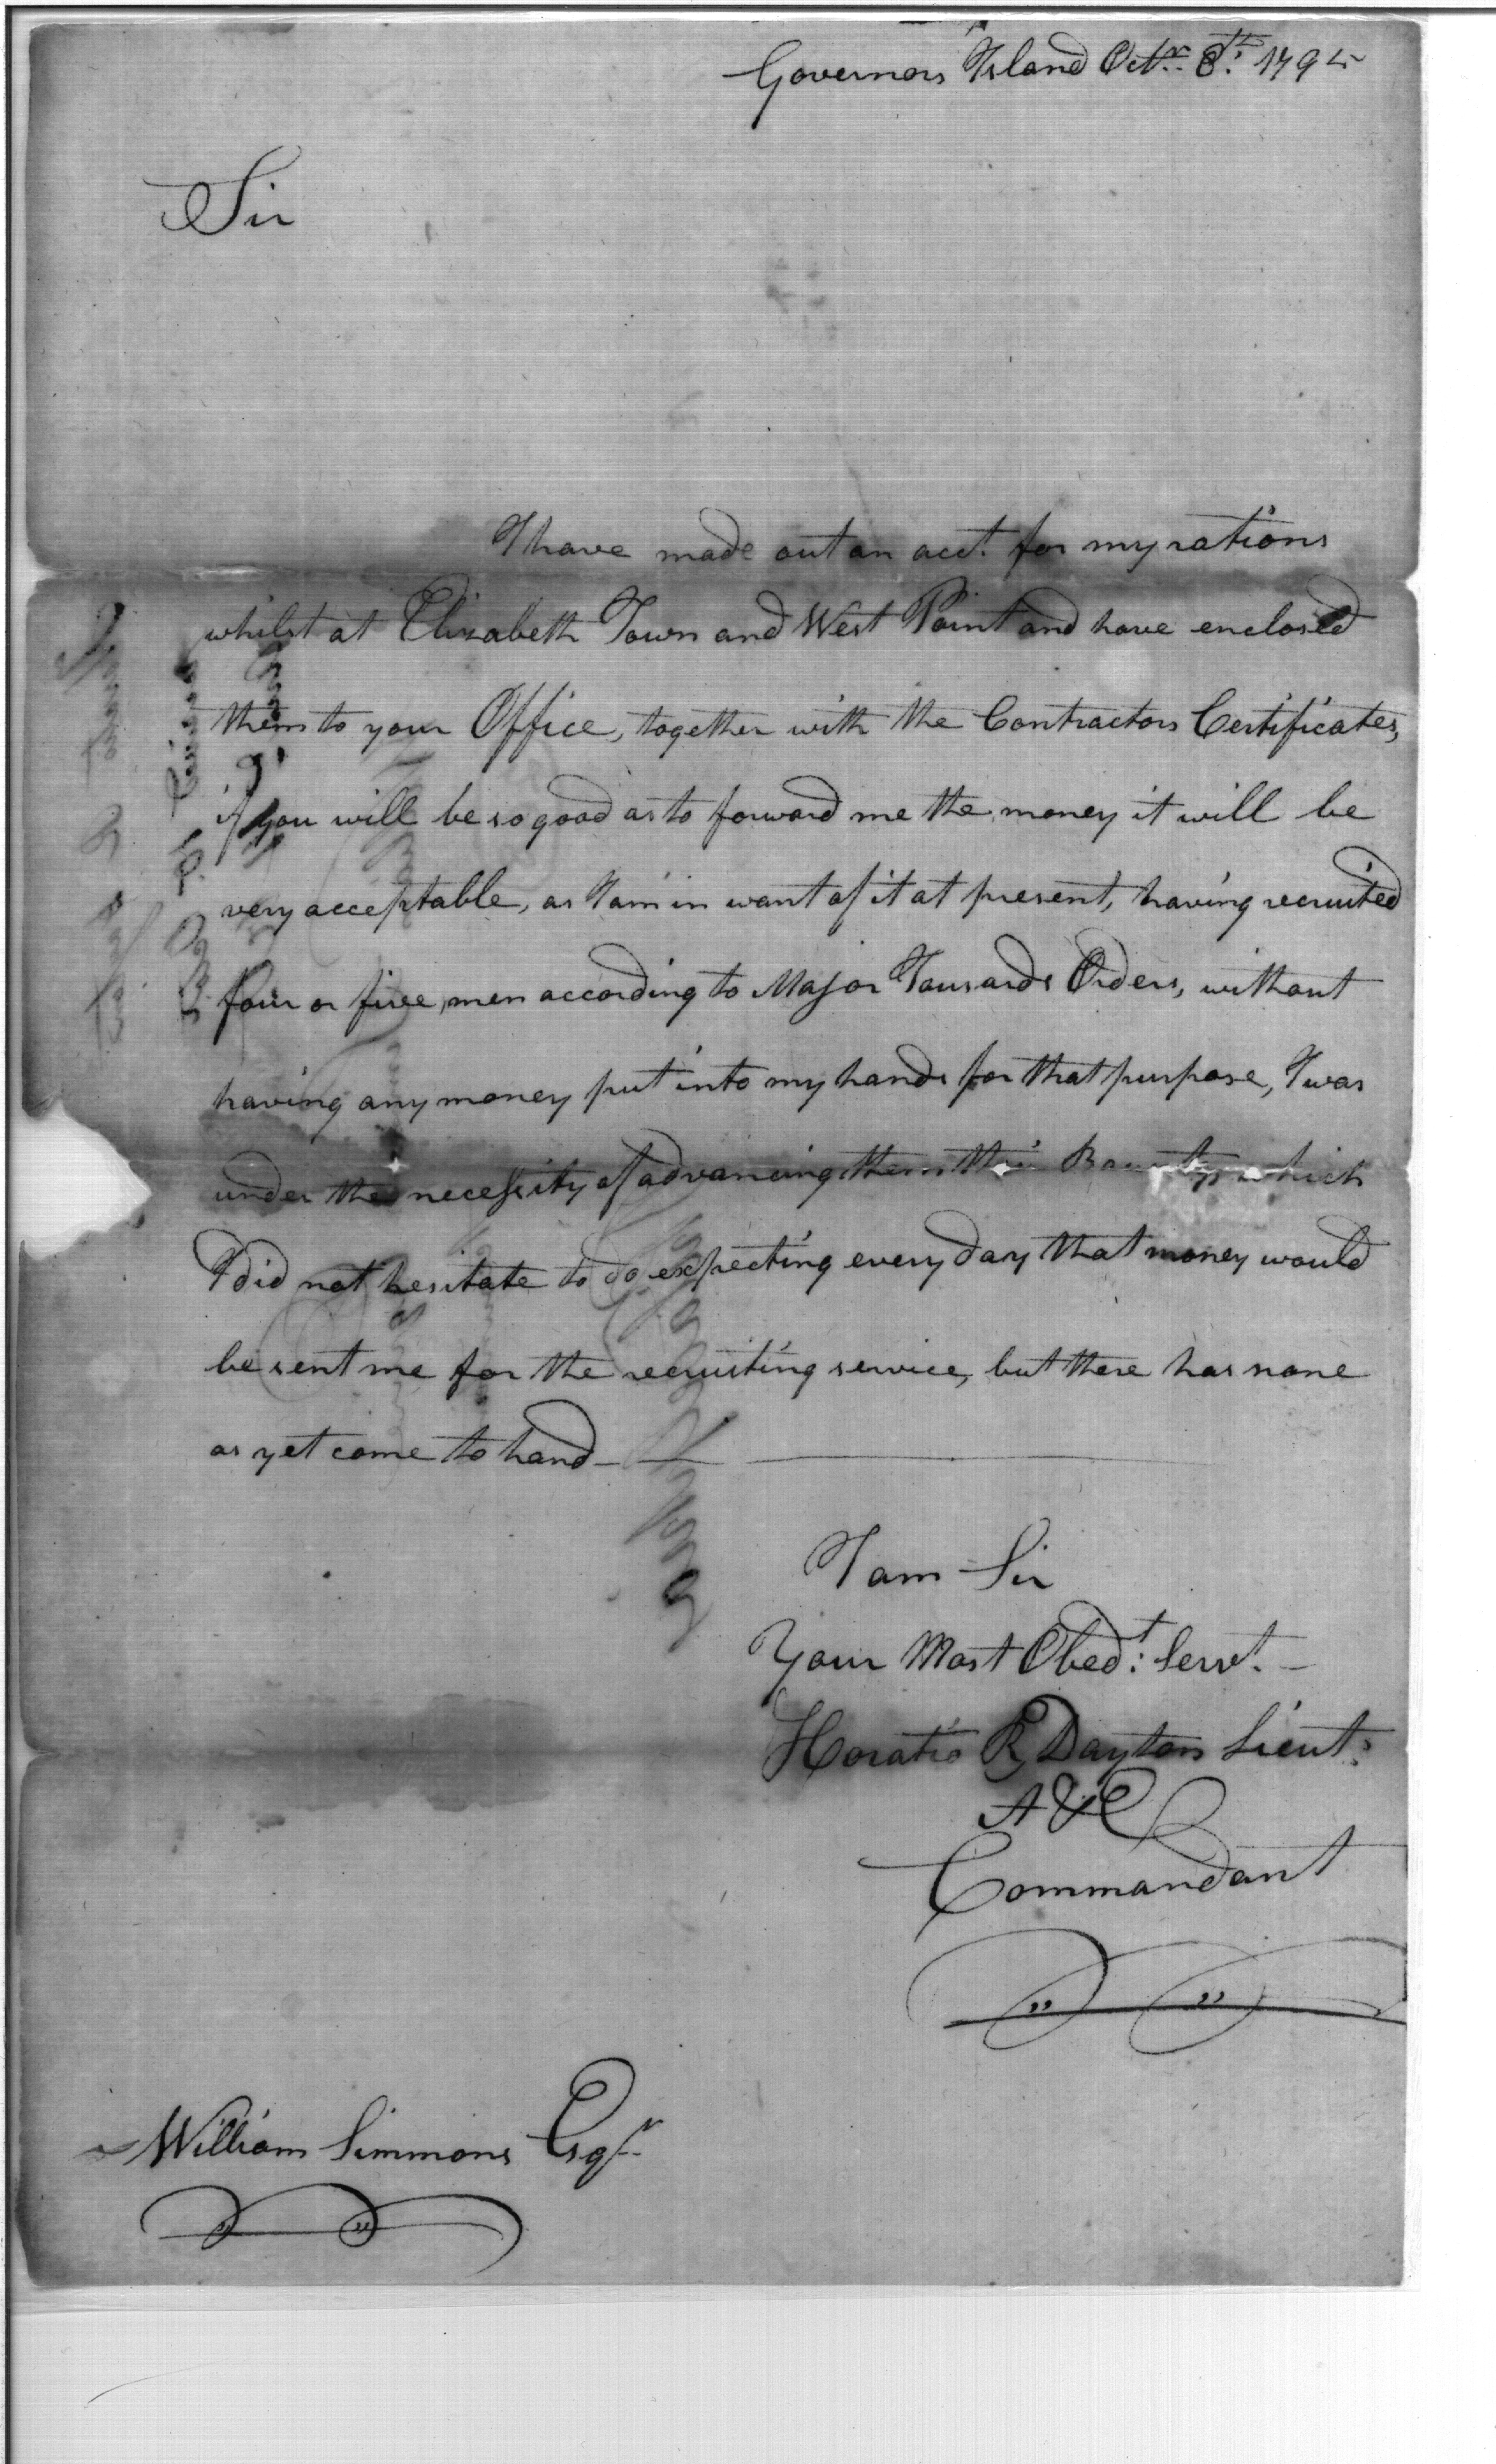 Governors Island Octr. 8th. 1795
Sir
I have made out an acct. for my rations
whilst at Elizabeth Town and West Point and have enclosed
them to your Office, together with the Contractors Certificates,
if you will be so good as to forward me the money it will be
very acceptable, as I am in want of it at present, having recruited
four or five men according to Major Tousards Orders, without
having any money put into my hands for that purpose, I was
under the necessity of advancing them their Bounty, which
I did not hesitate to do expecting every day that money would
be sent me for the recruiting service, but there has none
as yet come to hand
I am Sir
Your Most Obedt: Servt.
Horatio R Dayton Lieut:
A&E
Commandant
William Simmons Esqr